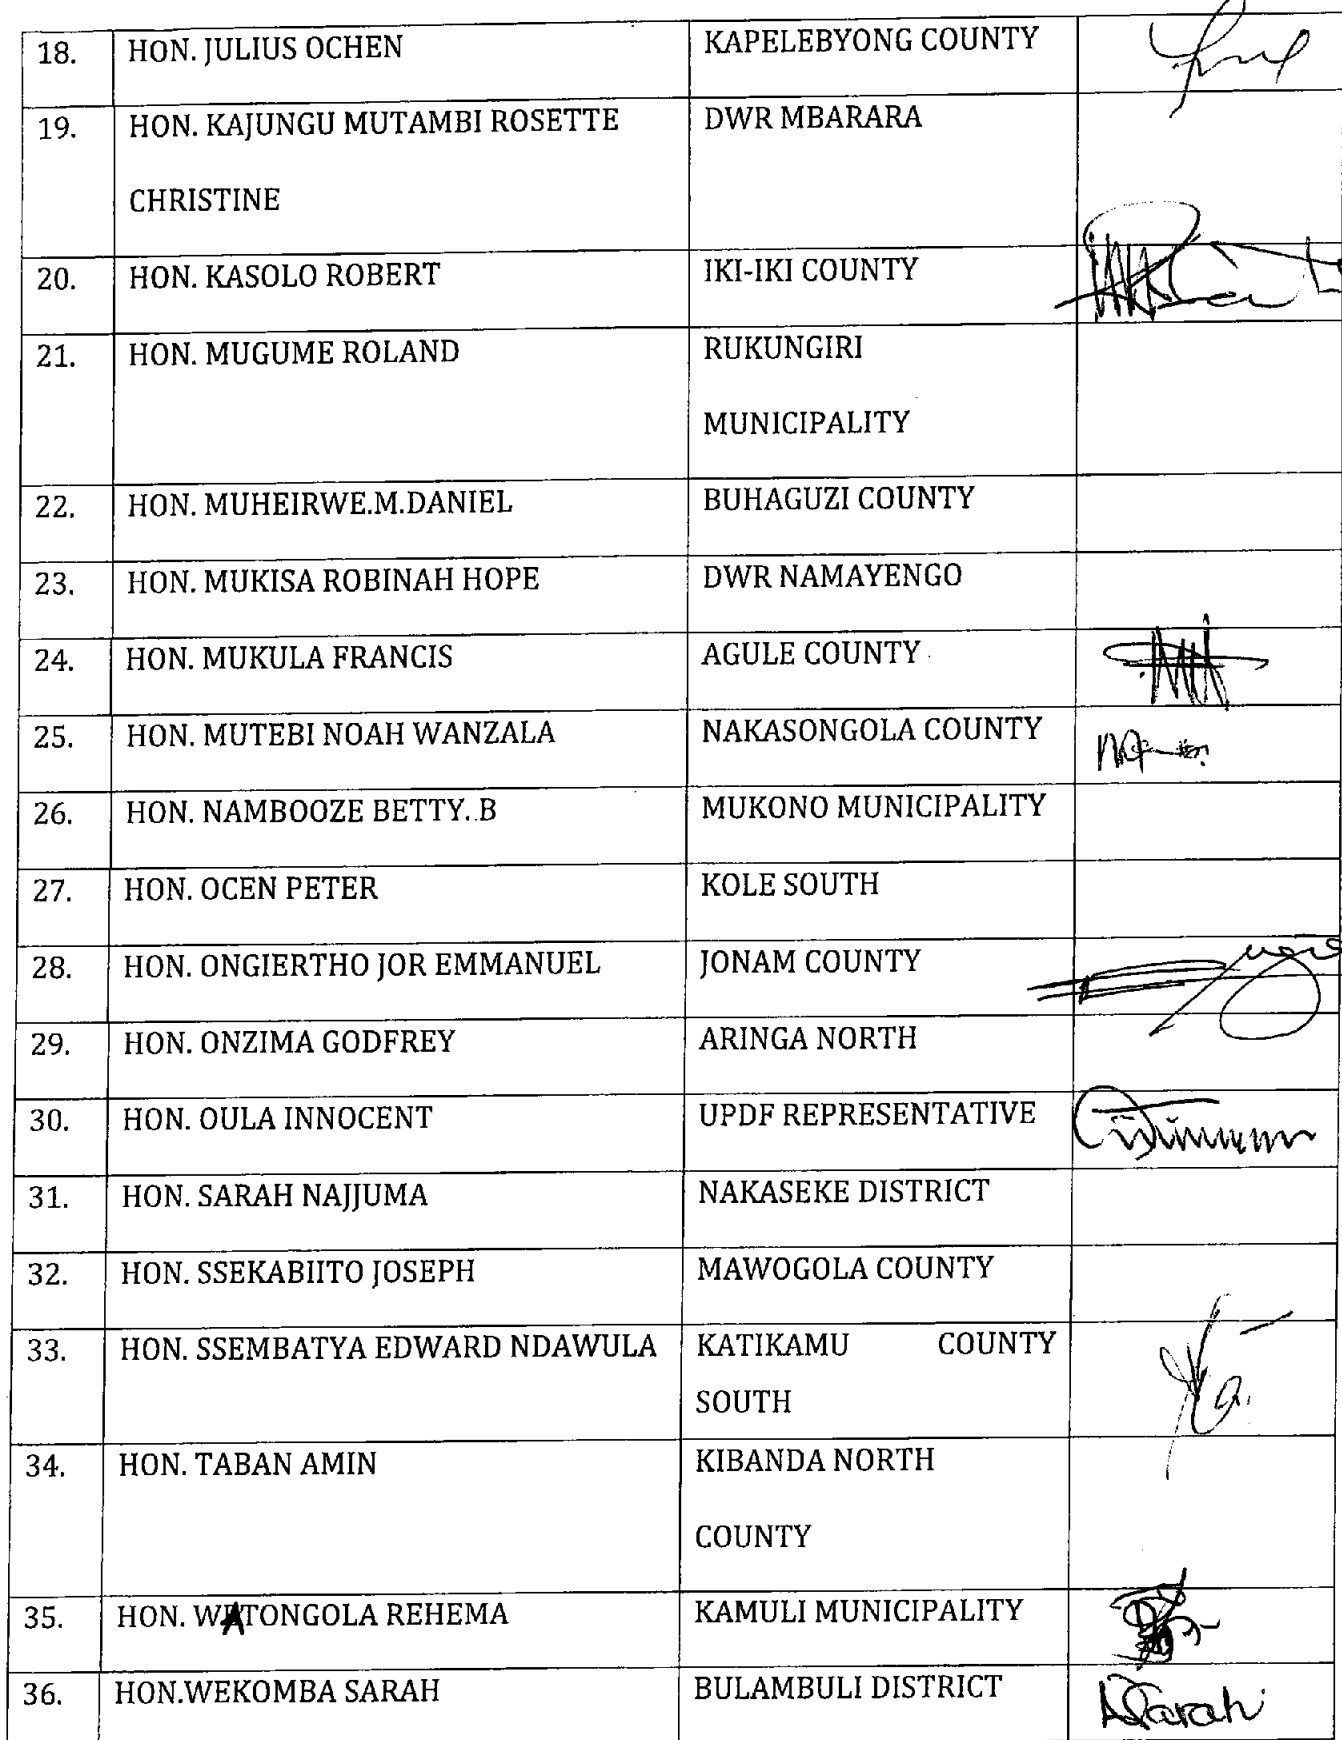 18. HON. JULIUS OCHEN KAPELEBYONG COUNTY
19. HON. KAJUNGU MUTAMBI ROSETTE DWR MBARARA
CHRISTINE
20. HON. KASOLO ROBERT IKI-IKI COUNTY
21. HON. MUGUME ROLAND RUKUNGIRI
MUNICIPALITY
22. HON. MUHEIRWE.M.DANIEL BUHAGUZI COUNTY
23. HON. MUKISA ROBINAH HOPE DWR NAMAYENGO
24. HON. MUKULA FRANCIS AGULE COUNTY
25. HON. MUTEBI NOAH WANZALA NAKASONGOLA COUNTY
26. HON. NAMBOOZE BETTY..B MUKONO MUNICIPALITY
27. HON. OCEN PETER KOLE SOUTH
28. HON. ONGIERTHO JOR EMMANUEL JONAM COUNTY
29. HON. ONZIMA GODFREY ARINGA NORTH
30. HON. OULA INNOCENT UPDF REPRESENTATIVE
31. HON. SARAH NAJJUMA NAKASEKE DISTRICT
32. HON. SSEKABIITO JOSEPH MAWOGOLA COUNTY
33. HON. SSEMBATYA EDWARD NDAWULA KATIKAMU COUNTY
SOUTH
34. HON. TABAN AMIN KIBANDA NORTH
COUNTY
35. HON. WATONGOLA REHEMA KAMULI MUNICIPALITY
36. HON.WEKOMBA SARAH BULAMBULI DISTRICT Sarah